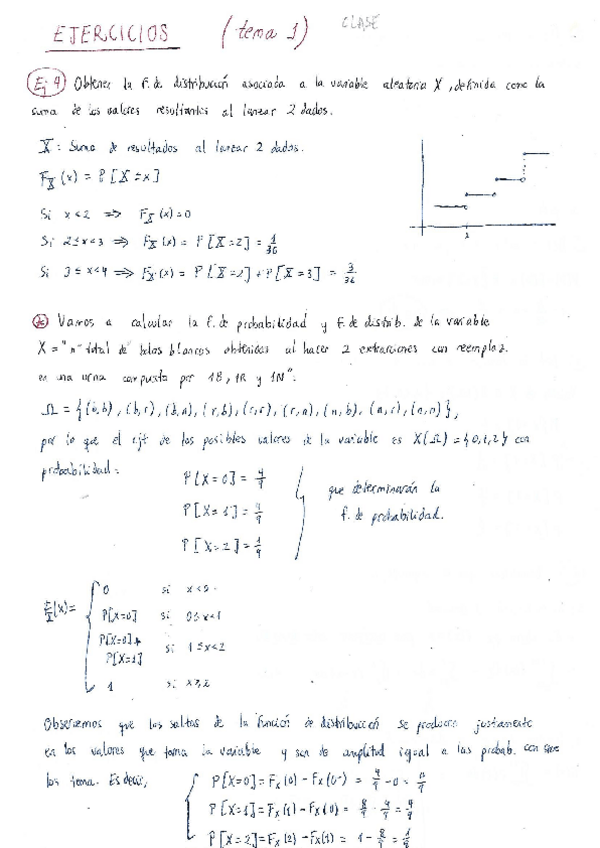 EJERCICIOS (tema 1) CLASE
Ej 4 Obtener la f. de distribución asociada a la variable aleatoria X, definida como la
suma de los valores resultantes al lanzar 2 dados.
X: Suma de resultados al lanzar 2 dados.
F_X(x) = P[X≤x]
Si x<2 ⇒ F_X(x)=0
Si 2≤x<3 ⇒ F_X(x) = P[X=2] = 1/36
Si 3≤x<4 ⇒ F_X(x) = P[X=2]+P[X=3] = 3/36
Vamos a calcular la f. de probabilidad y f. de distrib. de la variable
X = "nº total de bolas blancas obtenidas al hacer 2 extracciones con reemplaz.
en una urna compuesta por 1B, 1R y 1N".
Ω = {(b,b), (b,r), (b,n), (r,b), (r,r), (r,n), (n,b), (n,r), (n,n)},
por lo que el cjt de los posibles valores de la variable es X(Ω) = {0,1,2} con
probabilidad:
P[X=0] = 4/9
P[X=1] = 4/9
P[X=2] = 1/9
que determinarán la
f. de probabilidad.
F_X(x) =
0 si x<0
P[X=0] si 0≤x<1
P[X=0]+
P[X=1] si 1≤x<2
1 si x≥2
Observemos que los saltos de la función de distribución se producen justamente
en los valores que toma la variable y son de amplitud igual a las probab. con que
los toma. Es decir,
P[X=0] = F_X(0) - F_X(0⁻) = 4/9 - 0 = 4/9
P[X=1] = F_X(1) - F_X(0) = 8/9 - 4/9 = 4/9
P[X=2] = F_X(2) - F_X(1) = 1 - 8/9 = 1/9